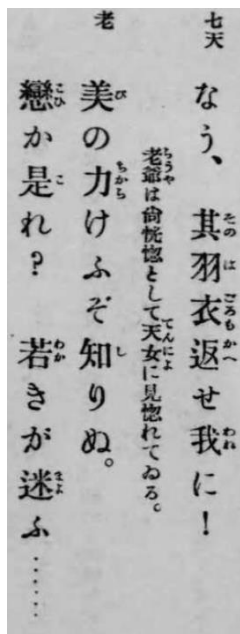 七天 なう、其羽衣返せ我に！
老爺は尙恍惚として天女に見惚れてゐる。
老 美の力けふぞ知りぬ。
戀か是れ？ 若きが迷ふ……